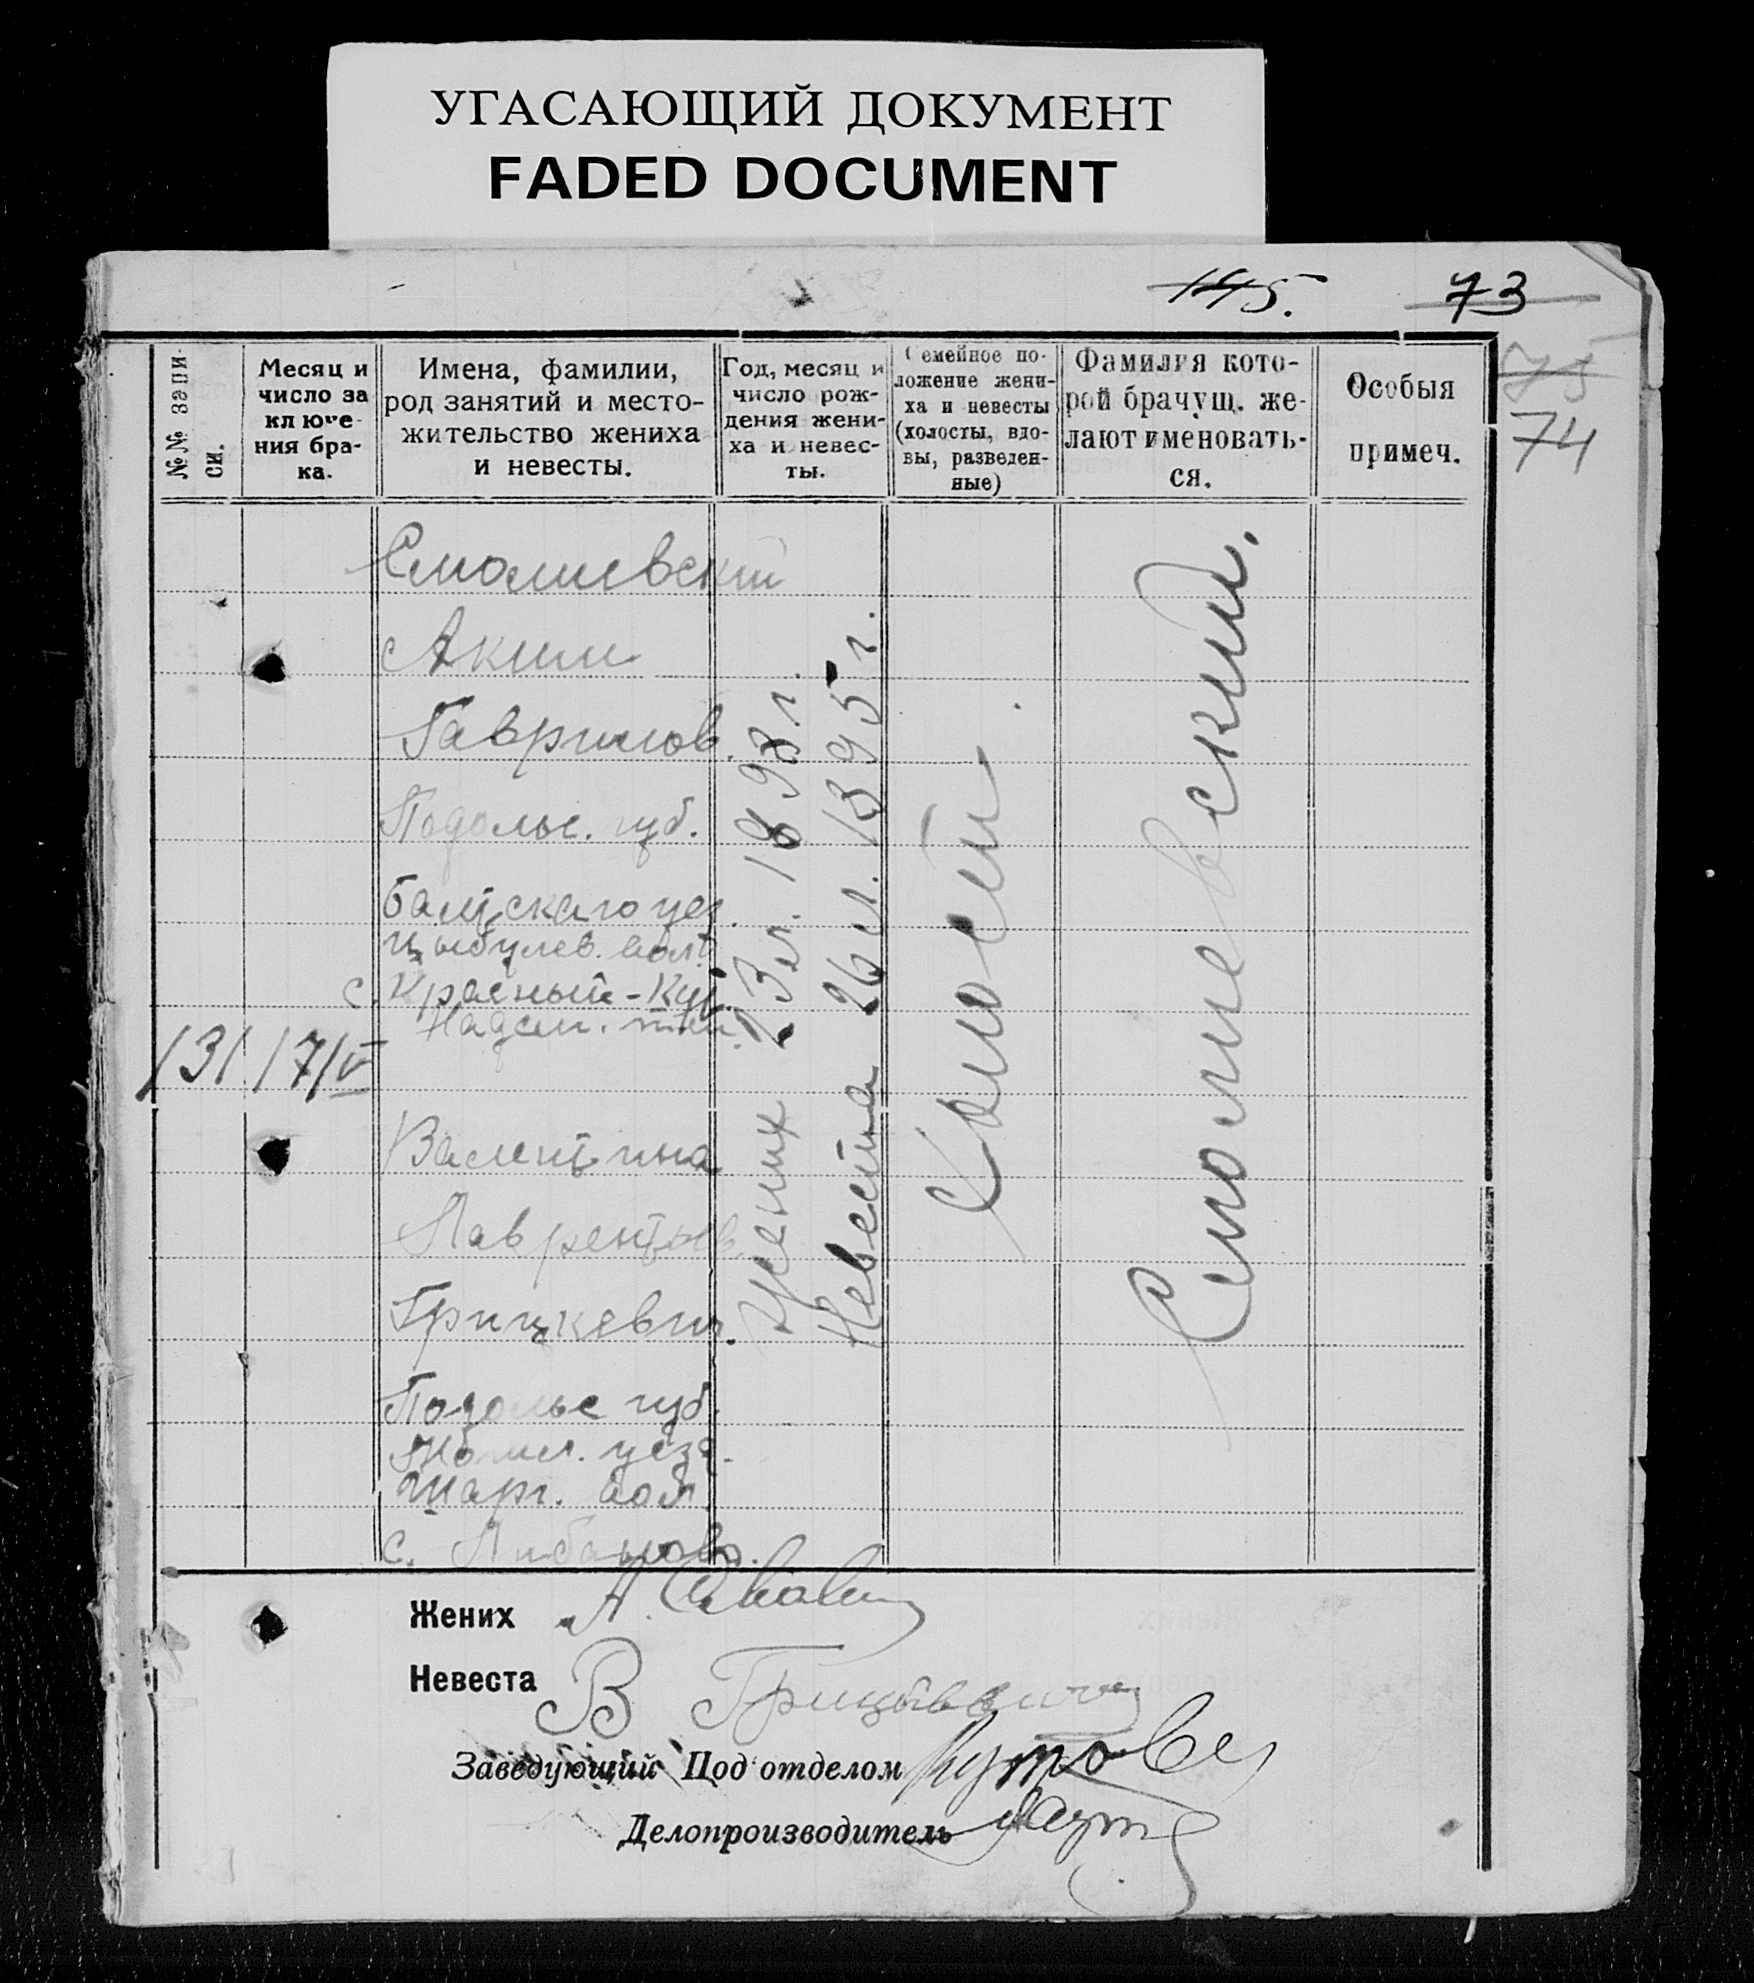 УГАСАЮЩИЙ ДОКУМЕНТ
FADED DOCUMENT
145.
73
75
74
№№ запи-
си.
Месяц и
число за
ключе-
ния бра-
ка.
Имена, фамилии,
род занятий и место-
жительство жениха
и невесты.
Год, месяц и
число рож-
дения жени-
ха и невес-
ты.
Семейное по-
ложение жени-
ха и невесты
(холосты, вдо-
вы, разведен-
ные)
Фамилия кото-
рой брачущ. же-
лают именовать-
ся.
Особыя
примеч.
131
17/V
Смолиевский
Аким
Гаврилов.
Подольс. губ.
Балтскаго уез.
Цыбулев. вол.
с. Красный-Кут
Надсм. тел.
Валентина
Лаврентьев.
Грицкевич.
Подольс губ.
уезд.
Шарг. вол.
с.
Жених 23 л. 1898 г.
Невеста 26 л. 1895 г.
Холосты
Смолиевский.
Жених А.
Невеста В Грицкевич
Заведующий Под'отделом
Делопроизводитель